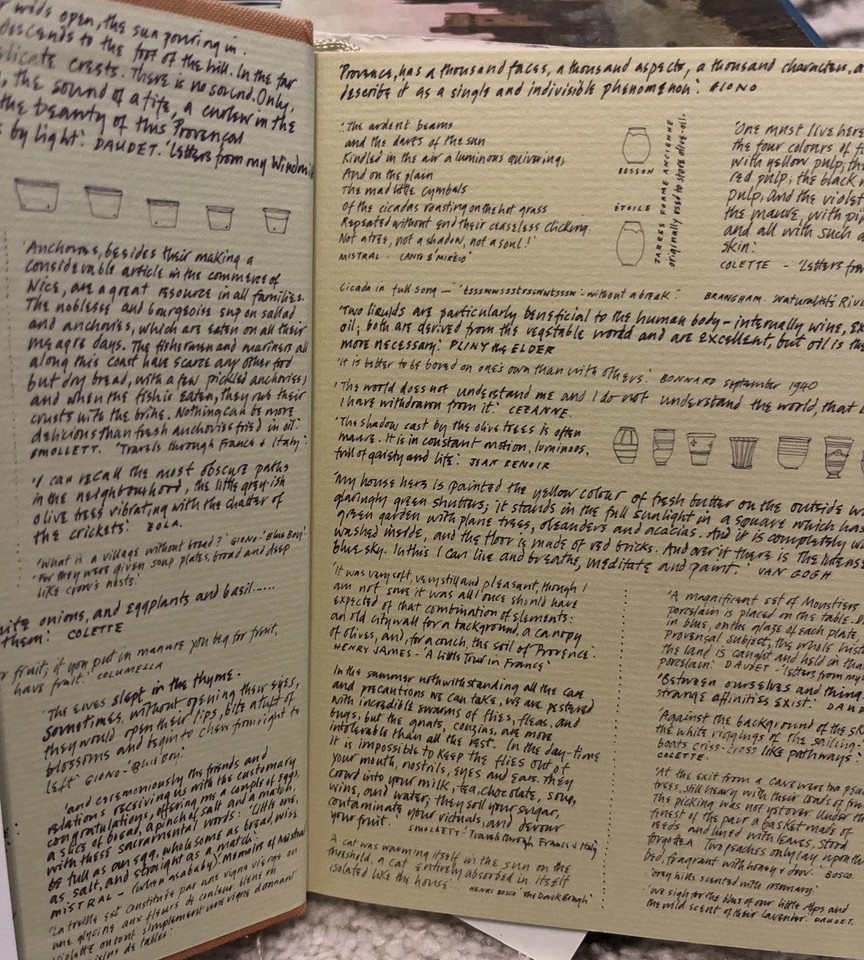 wide open, the sun pouring in.
descends to the foot of the hill. In the far
delicate crests. There is no sound. Only,
, the sound of a fife, a curlew in the
the beauty of this Provençal
by light'. DAUDET. 'Letters from my Windmil
'Anchovies, besides their making a
considerable article in the commerce of
Nice, are a great resource in all families.
The noblesse and bourgeoise sup on sallad
and anchovies, which are eaten on all their
meagre days. The fishermen and mariners all
along this coast have scarce any other food
but dry bread, with a few pickled anchovies;
and when the fish is eaten, they rub their
crusts with the brine. Nothing can be more
delicious than fresh anchovies fried in oil.'
SMOLLETT. 'Travels through France & Italy'.
'I can recall the most obscure paths
in the neighbourhood, the little grey-ish
olive trees vibrating with the chatter of
the crickets'. ZOLA.
'What is a village without bread?' GIONO. 'Blue Boy'.
'For they were given soup plates, broad and deep
like crow's nests.'
white onions, and eggplants and basil......
them'. COLETTE
for fruit; if you put in manure you beg for fruit,
have fruit.' COLUMELLA
'The ewes slept in the thyme.
Sometimes, without opening their eyes,
they would open their lips, bite a tuft of
blossoms and begin to chew from right to
left' GIONO - 'Blue Boy'.
'and ceremoniously the friends and
relations receiving us with the customary
congratulations, offering me a couple of eggs,
a slice of bread, a pinch of salt and a match,
with these sacramental words: 'Little one,
be full as an egg, wholesome as bread, wise
as salt, and straight as a match.'
MISTRAL - (when a baby). Memoirs of Mistral
'La treille est constituée par une vigne vierge ou
une glycine aux fleurs de couleur bleue ou
violette ou tout simplement une vigne donnant
raisins de tables'.
'Provence, has a thousand faces, a thousand aspects, a thousand characters, a
describe it as a single and indivisible phenomenon'. GIONO
'The ardent beams
and the darts of the sun
Kindled in the air a luminous quivering;
And on the plain
The mad little cymbals
Of the cicadas roasting on the hot grass
Repeated without end their ceaseless clicking.
Not a tree, not a shadow, not a soul!'
MISTRAL - CANTO 8 'MIREIO'
BESSON
ÉTOILE
JARRES FORME ANCIENNE
originally used to store olive-oil.
'One must live here
the four colours of fi
with yellow pulp; the
red pulp; the black
pulp, and the violet
the mauve, with pi
and all with such a
skin.'
COLETTE - 'Letters fro
Cicada in full song - 'tsssmwsssts
- without a break'. BRANGHAM. Naturalists Rivi
'Two liquids are particularly beneficial to the human body - internally wine, ex
oil; both are derived from the vegetable world and are excellent, but oil is the
more necessary'. PLINY the ELDER
'It is better to be bored on one's own than with others'. BONNARD September 1940
'The world does not understand me and I do not understand the world, that
I have withdrawn from it'. CEZANNE.
'The shadow cast by the olive trees is often
mauve. It is in constant motion, luminous,
full of gaiety and life'. JEAN RENOIR
'My house here is painted the yellow colour of fresh butter on the outside wi
glaringly green shutters; it stands in the full sunlight in a square which has
green garden with plane trees, oleanders and acacias. And it is completely wh
washed inside, and the floor is made of red bricks. And over it there is the intense
blue sky. In this I can live and breathe, meditate and paint.' VAN GOGH
'It was very soft, very still and pleasant, though I
am not sure it was all I once should have
expected of that combination of elements:
an old city wall for a background, a canopy
of olives, and, for a couch, the soil of Provence.
HENRY JAMES - 'A little Tour in France'
In the summer notwithstanding all the care
and precautions we can take, we are pestered
with incredible swarms of flies, fleas, and
bugs, but the gnats, couzins, are more
intolerable than all the rest. In the day-time
it is impossible to keep the flies out of
your mouth, nostrils, eyes and ears. They
crowd into your milk, tea, chocolate, soup,
wine, and water; they soil your sugar,
contaminate your victuals, and devour
your fruit.' SMOLLETT. 'Travels through France & Italy
A cat was warming itself in the sun on the
threshold, a cat entirely absorbed in itself
isolated like the house'. HENRI BOSCO 'The Dark Bough'
'A magnificent set of Moustiers
porcelain is placed on the table. D
in blue, on the glaze of each plate,
Provençal subject, the whole histo
the land is caught and held in that
porcelain'. DAUDET - 'Letters from my
'Between ourselves and things
strange affinities exist'. DAUD
'Against the background of the sk
the white riggings of the sailing-
boats criss-cross like pathways'.
COLETTE.
'At the exit from a cave were two pea
trees, still heavy with their loads of fru
The picking was not yet over. Under th
finest of the pair a basket made of
reeds and lined with leaves, stood
forgotten. Two peaches only lay upon the
bed, fragrant with honey & dew'. BOSCO.
'Grey hills scented with rosemary.'
'We sigh for the blue of our little Alps and
the mild scent of their lavender'. DAUDET.